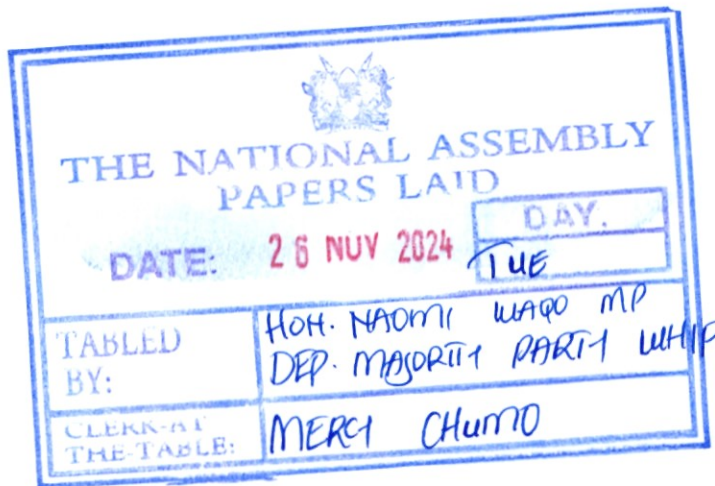 THE NATIONAL ASSEMBLY
PAPERS LAID
DATE: 26 NOV 2024 DAY.
TUE
TABLED BY: HON. NAOMI WAQO MP
DEP. MAJORITY PARTY WHIP
CLERK-AT THE-TABLE: MERCY CHUMO